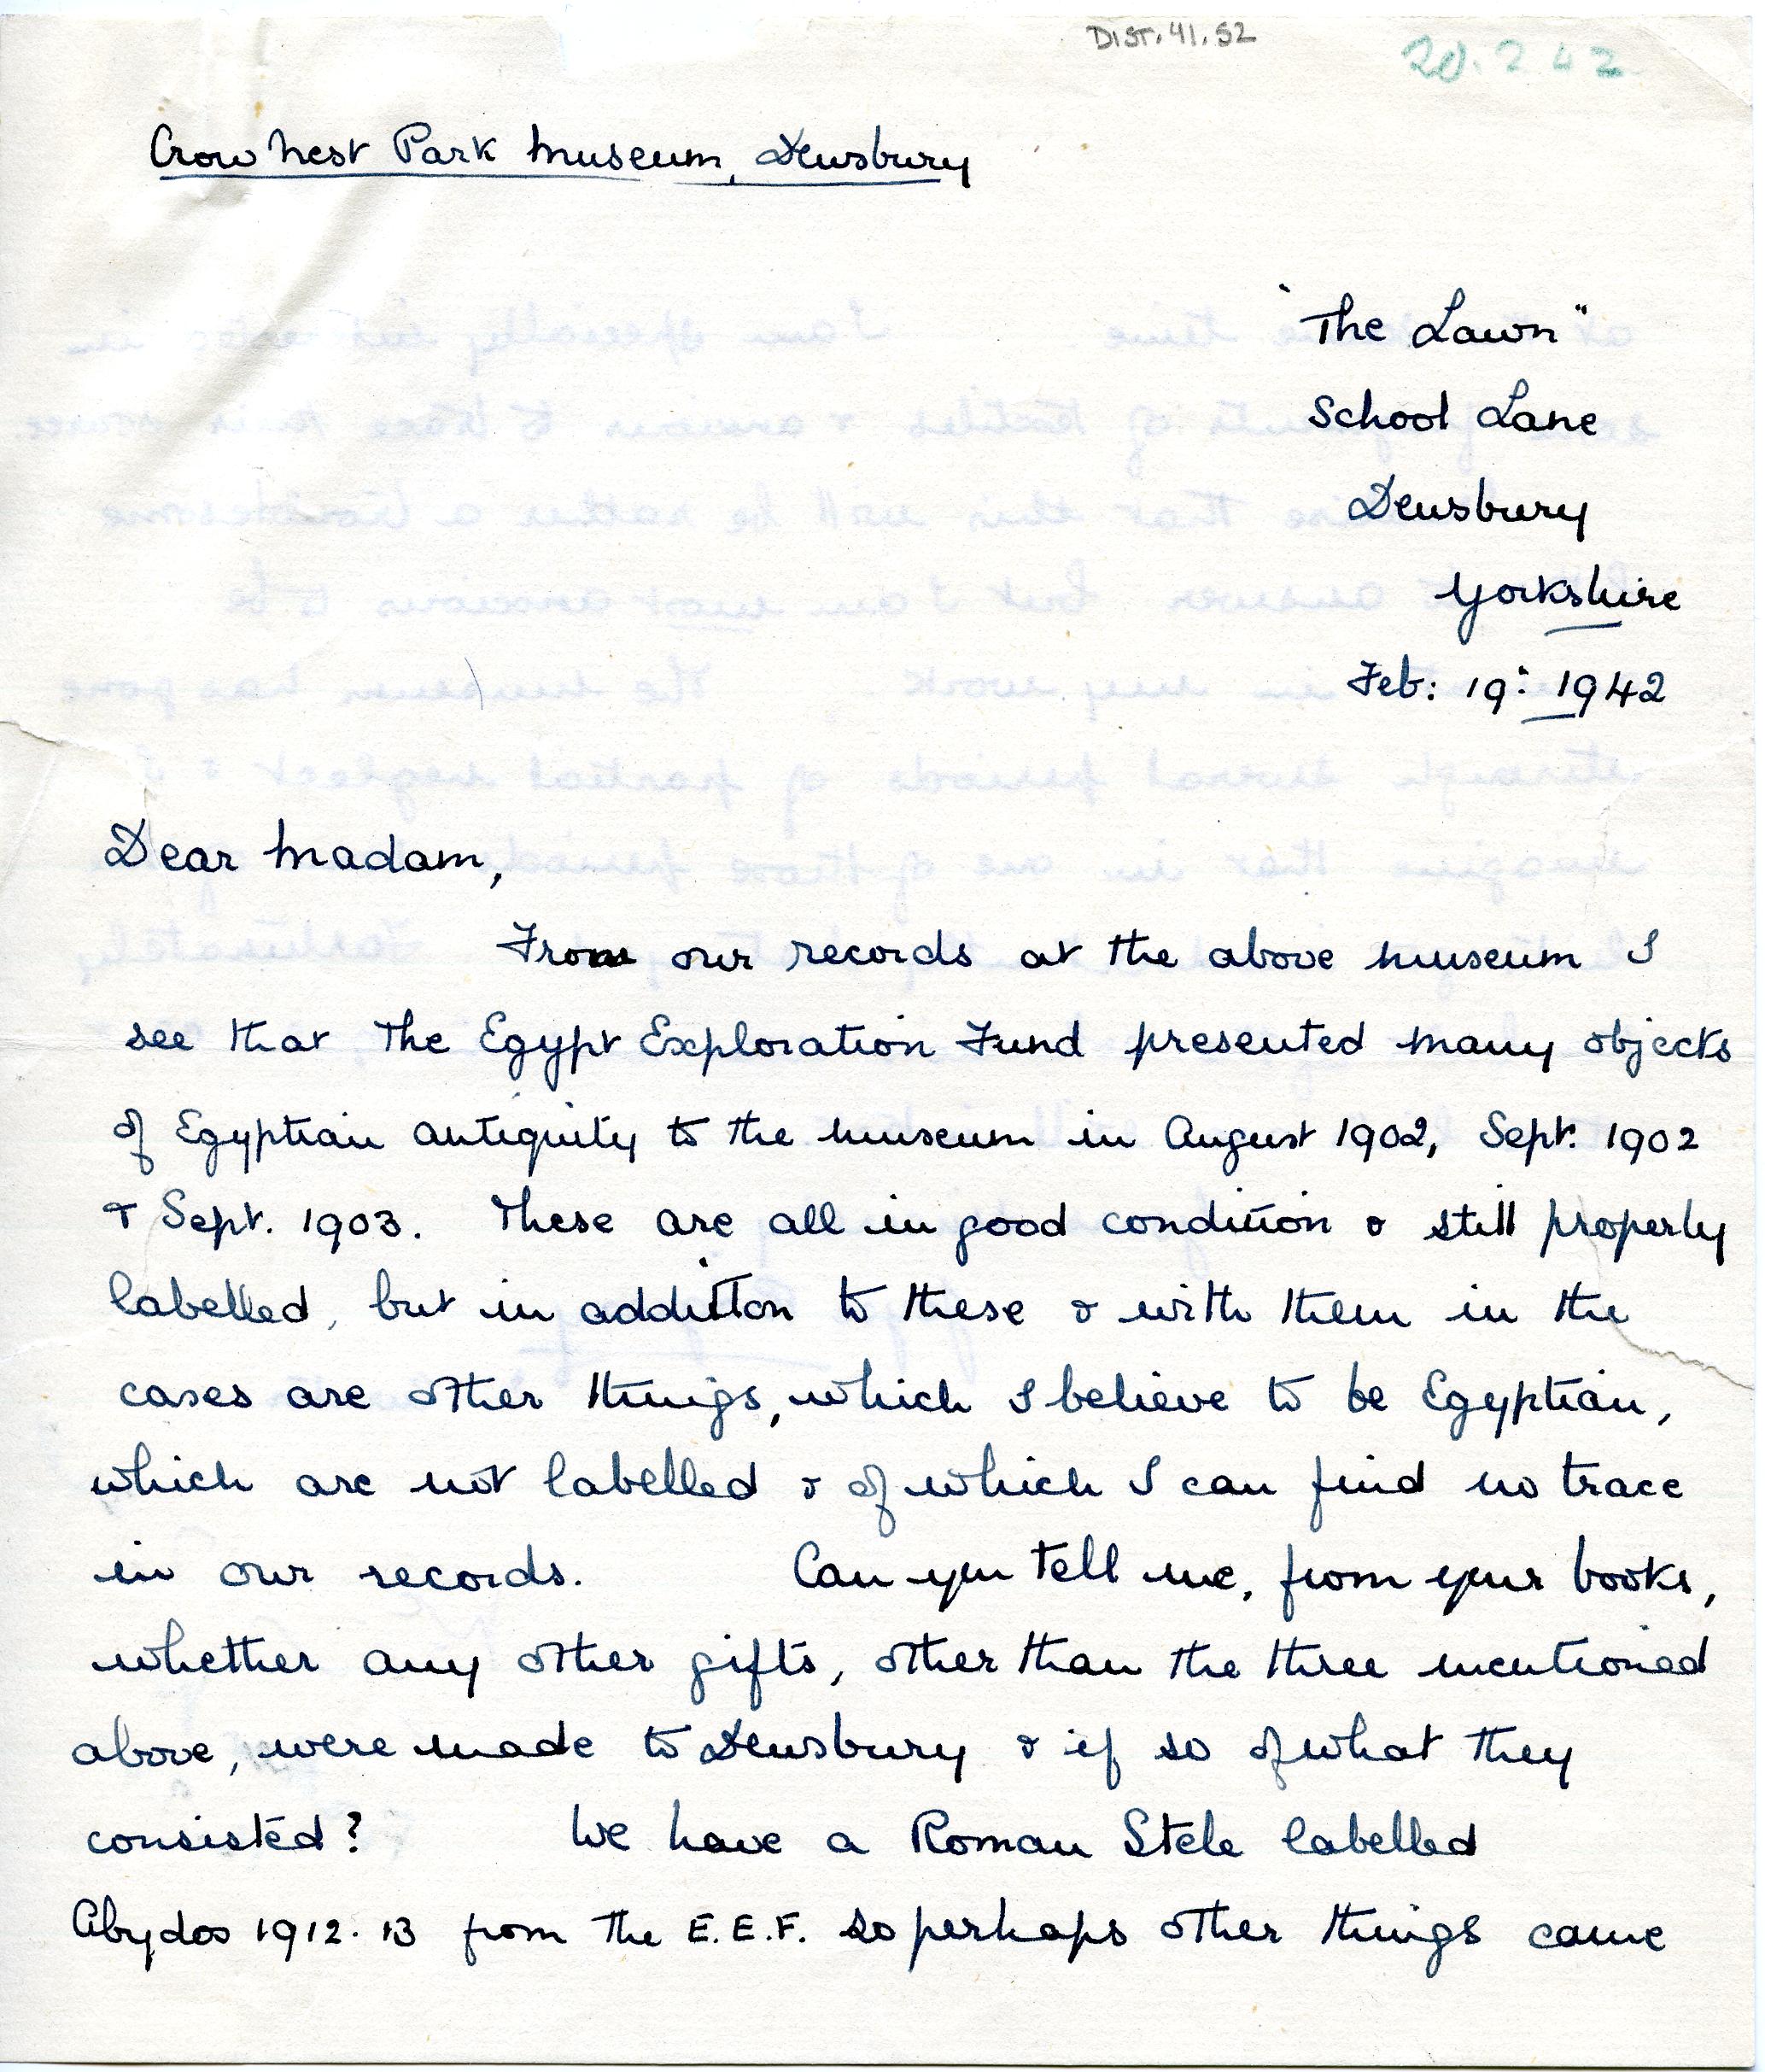 DIST. 41. 52
20. 2 42
Crow Nest Park Museum, Dewsbury
"The Lawn"
School Lane
Dewsbury
Yorkshire
Feb: 19: 1942
Dear Madam,
From our records at the above museum I
see that the Egypt Exploration Fund presented many objects
of Egyptian antiquity to the museum in August 1902, Sept. 1902
& Sept. 1903. These are all in good condition & still properly
labelled, but in addition to these & with them in the
cases are other things, which I believe to be Egyptian,
which are not labelled & of which I can find no trace
in our records. Can you tell me, from your books,
whether any other gifts, other than the three mentioned
above, were made to Dewsbury & if so of what they
consisted? We have a Roman Stele labelled
Abydos 1912. 13 from the E.E.F. so perhaps other things came